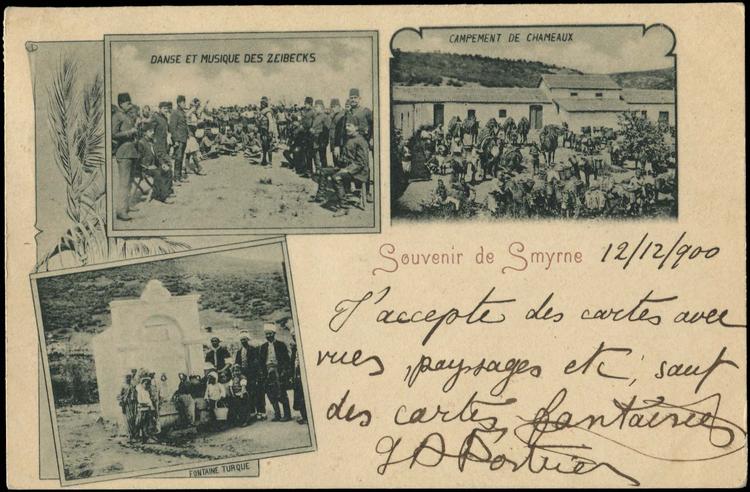 DANSE ET MUSIQUE DES ZEIBECKS
CAMPEMENT DE CHAMEAUX
Souvenir de Smyrne 12/12/900
J'accepte des cartes avec
vues, paysages etc, sauf
des cartes fantaisies
FONTAINE TURQUE